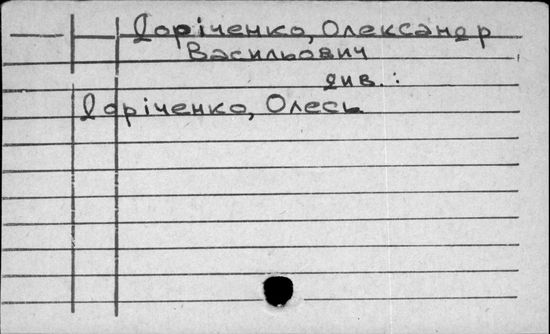 Доріченко, Олександр
Васильович
див.:
Доріченко, Олесь